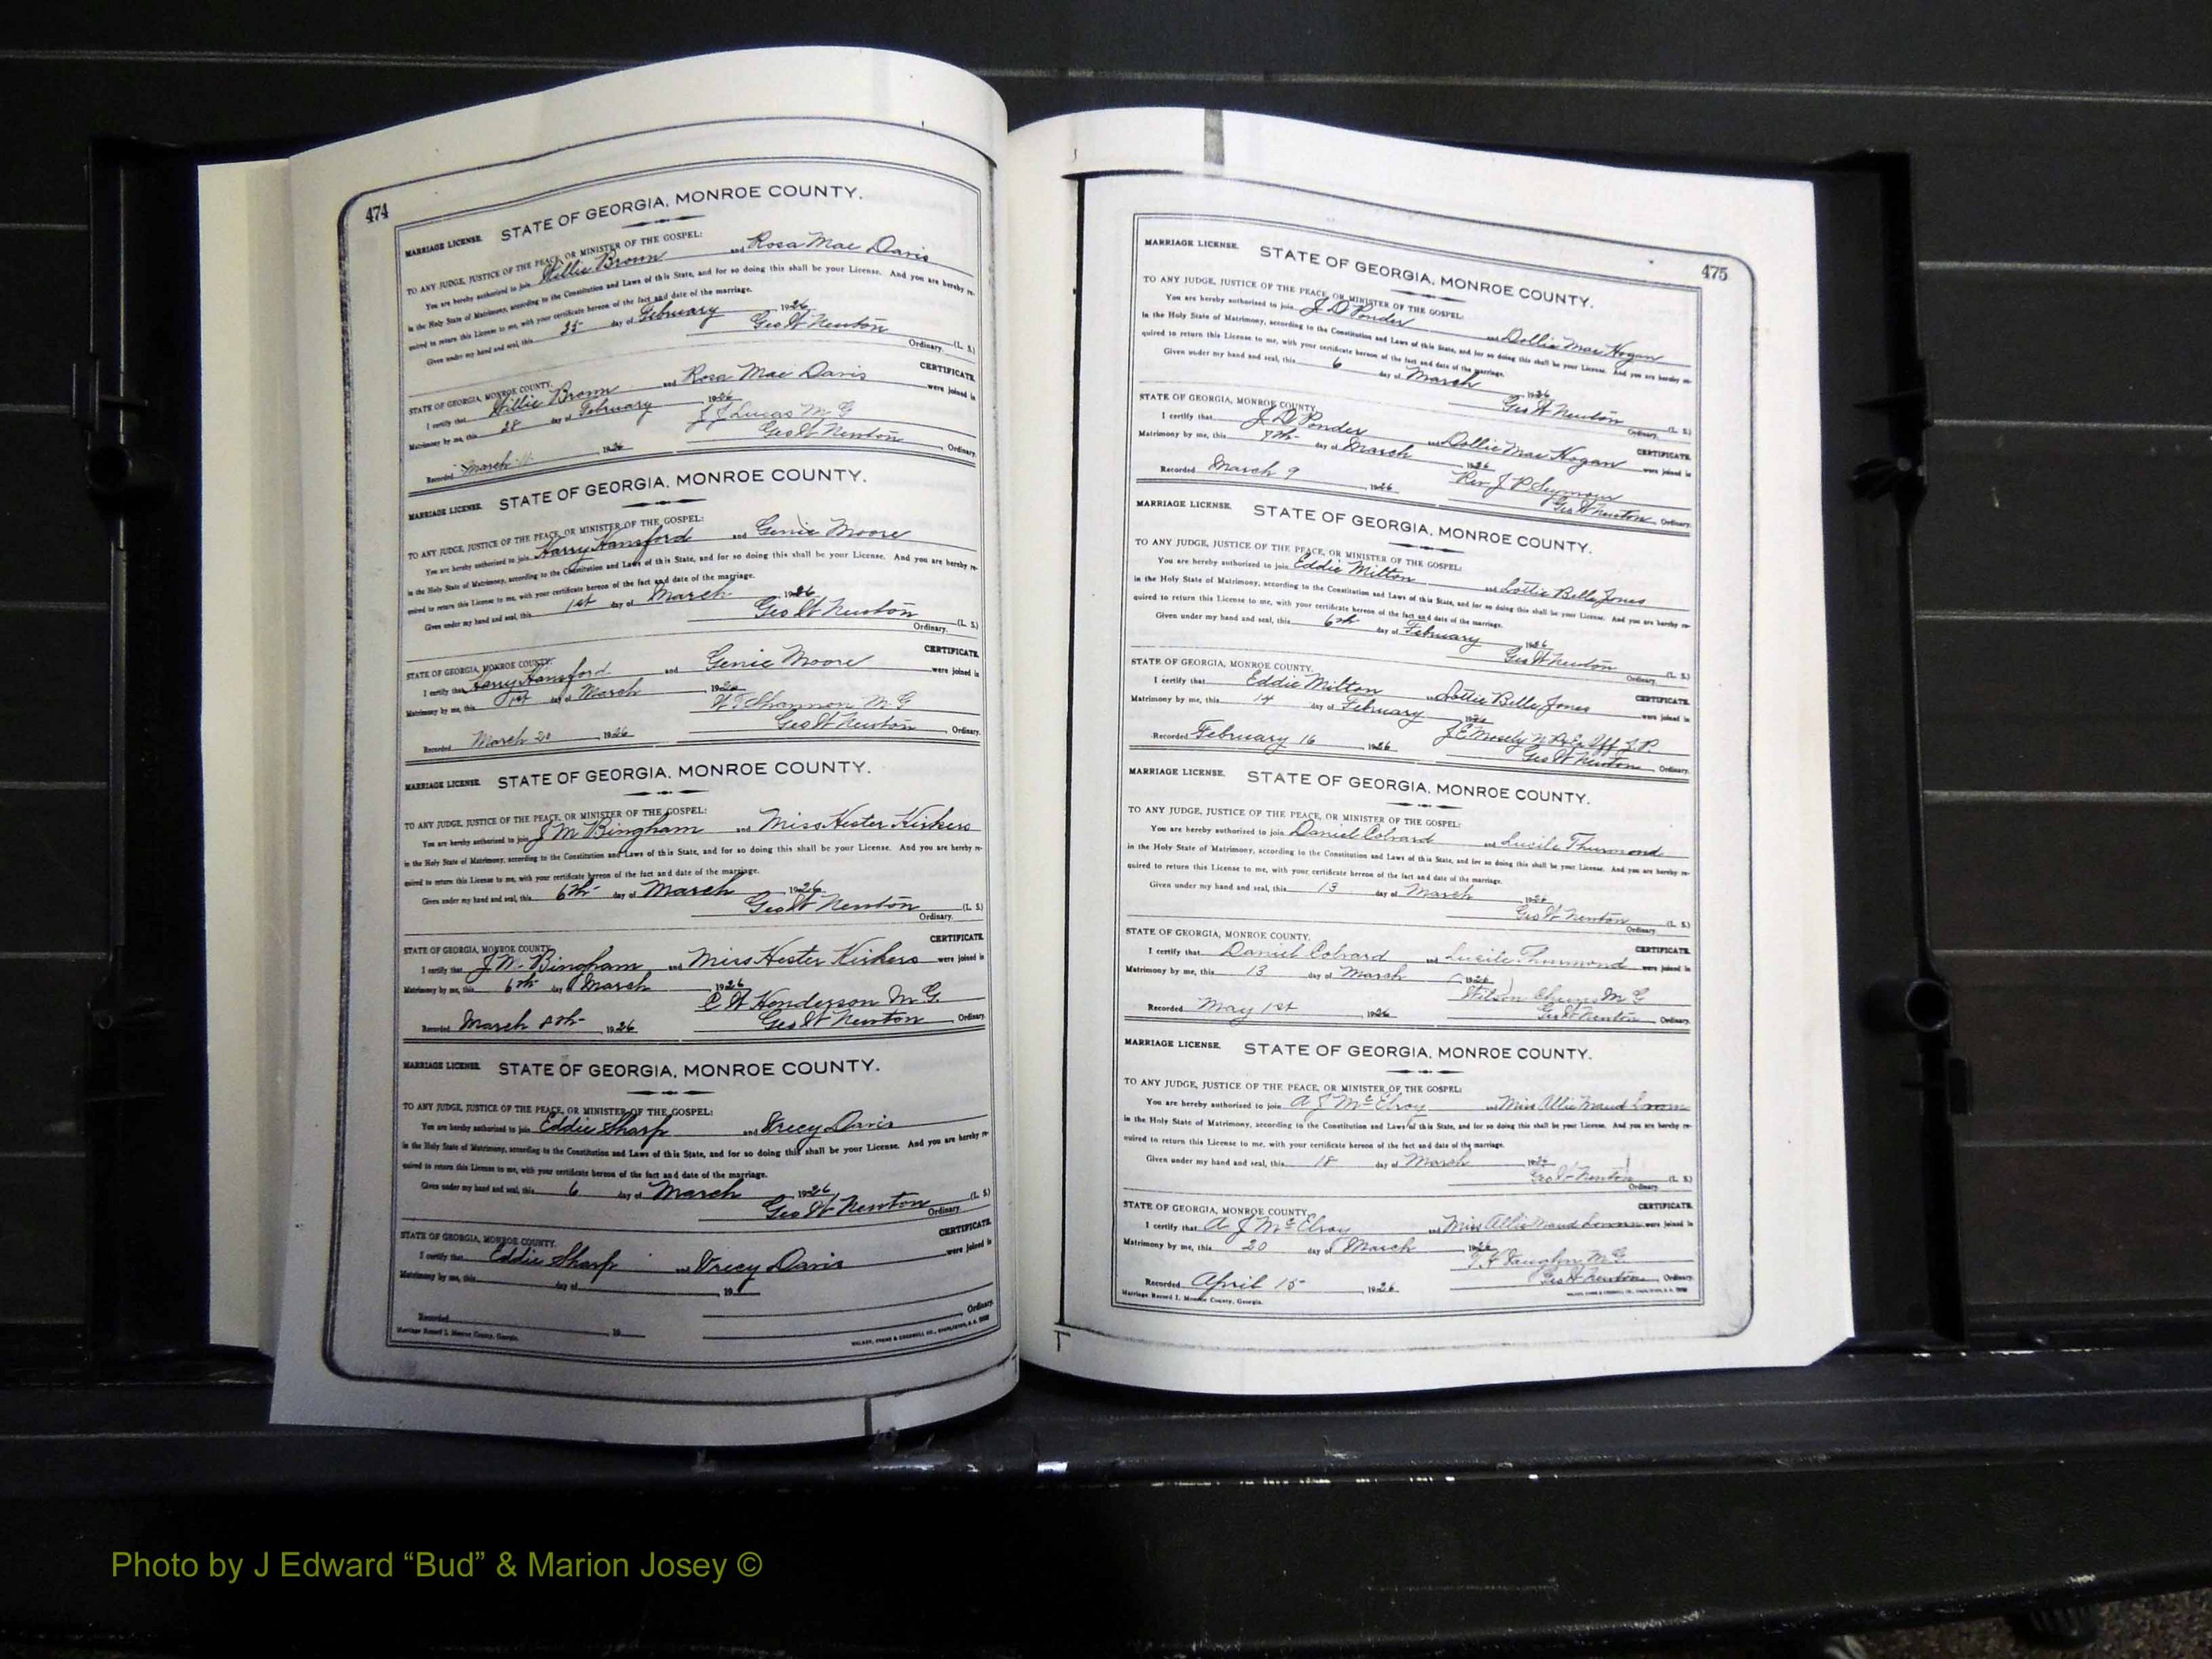 474
MARRIAGE LICENSE. STATE OF GEORGIA, MONROE COUNTY.
TO ANY JUDGE, JUSTICE OF THE PEACE, OR MINISTER OF THE GOSPEL:
You are hereby authorized to join Willie Brown and Rosa Mae Davis
in the Holy State of Matrimony, according to the Constitution and Laws of this State, and for so doing this shall be your License. And you are hereby re-
quired to return this License to me, with your certificate hereon of the fact and date of the marriage.
Given under my hand and seal, this 25 day of February 1926
Geo W Newton (L. S.)
Ordinary.
STATE OF GEORGIA, MONROE COUNTY. CERTIFICATE.
I certify that Willie Brown and Rosa Mae Davis were joined in
Matrimony by me, this 28 day of February 1926
J J Lucas M G
Recorded March 1926 Geo W Newton, Ordinary.
MARRIAGE LICENSE. STATE OF GEORGIA, MONROE COUNTY.
TO ANY JUDGE, JUSTICE OF THE PEACE, OR MINISTER OF THE GOSPEL:
You are hereby authorized to join Harry Hansford and Genie Moore
in the Holy State of Matrimony, according to the Constitution and Laws of this State, and for so doing this shall be your License. And you are hereby re-
quired to return this License to me, with your certificate hereon of the fact and date of the marriage.
Given under my hand and seal, this 1st day of March 1926
Geo W Newton (L. S.)
Ordinary.
STATE OF GEORGIA, MONROE COUNTY. CERTIFICATE.
I certify that Harry Hansford and Genie Moore were joined in
Matrimony by me, this 1st day of March 1926
Shannon M G
Recorded March 20 1926 Geo W Newton, Ordinary.
MARRIAGE LICENSE. STATE OF GEORGIA, MONROE COUNTY.
TO ANY JUDGE, JUSTICE OF THE PEACE, OR MINISTER OF THE GOSPEL:
You are hereby authorized to join J M Bingham and Miss Hester Kirkers
in the Holy State of Matrimony, according to the Constitution and Laws of this State, and for so doing this shall be your License. And you are hereby re-
quired to return this License to me, with your certificate hereon of the fact and date of the marriage.
Given under my hand and seal, this 6th day of March 1926
Geo W Newton (L. S.)
Ordinary.
STATE OF GEORGIA, MONROE COUNTY. CERTIFICATE.
I certify that J M Bingham and Miss Hester Kirkers were joined in
Matrimony by me, this 6th day of March 1926
C W Henderson M G.
Recorded March 8th 1926 Geo W Newton, Ordinary.
MARRIAGE LICENSE. STATE OF GEORGIA, MONROE COUNTY.
TO ANY JUDGE, JUSTICE OF THE PEACE, OR MINISTER OF THE GOSPEL:
You are hereby authorized to join Eddie Sharp and Treey Davis
in the Holy State of Matrimony, according to the Constitution and Laws of this State, and for so doing this shall be your License. And you are hereby re-
quired to return this License to me, with your certificate hereon of the fact and date of the marriage.
Given under my hand and seal, this 6 day of March 1926
Geo W Newton (L. S.)
Ordinary.
STATE OF GEORGIA, MONROE COUNTY. CERTIFICATE.
I certify that Eddie Sharp and Treey Davis were joined in
Matrimony by me, this day of 19
Recorded 19 Ordinary.
Marriage Record I, Monroe County, Georgia.
475
MARRIAGE LICENSE. STATE OF GEORGIA, MONROE COUNTY.
TO ANY JUDGE, JUSTICE OF THE PEACE, OR MINISTER OF THE GOSPEL:
You are hereby authorized to join J D Ponder and Dollie Mae Hogan
in the Holy State of Matrimony, according to the Constitution and Laws of this State, and for so doing this shall be your License. And you are hereby re-
quired to return this License to me, with your certificate hereon of the fact and date of the marriage.
Given under my hand and seal, this 6 day of March 1926
Geo W Newton (L. S.)
Ordinary.
STATE OF GEORGIA, MONROE COUNTY. CERTIFICATE.
I certify that J D Ponder and Dollie Mae Hogan were joined in
Matrimony by me, this 7th day of March 1926
Rev J P Seymour
Recorded March 9 1926 Geo W Newton, Ordinary.
MARRIAGE LICENSE. STATE OF GEORGIA, MONROE COUNTY.
TO ANY JUDGE, JUSTICE OF THE PEACE, OR MINISTER OF THE GOSPEL:
You are hereby authorized to join Eddie Milton and Lottie Belle Jones
in the Holy State of Matrimony, according to the Constitution and Laws of this State, and for so doing this shall be your License. And you are hereby re-
quired to return this License to me, with your certificate hereon of the fact and date of the marriage.
Given under my hand and seal, this 6th day of February 1926
Geo W Newton (L. S.)
Ordinary.
STATE OF GEORGIA, MONROE COUNTY. CERTIFICATE.
I certify that Eddie Milton and Lottie Belle Jones were joined in
Matrimony by me, this 14 day of February 1926
J E Mosely N P & Ex Off J. P.
Recorded February 16 1926 Geo W Newton, Ordinary.
MARRIAGE LICENSE. STATE OF GEORGIA, MONROE COUNTY.
TO ANY JUDGE, JUSTICE OF THE PEACE, OR MINISTER OF THE GOSPEL:
You are hereby authorized to join Daniel Colvard and Lucile Thurmond
in the Holy State of Matrimony, according to the Constitution and Laws of this State, and for so doing this shall be your License. And you are hereby re-
quired to return this License to me, with your certificate hereon of the fact and date of the marriage.
Given under my hand and seal, this 13 day of March 1926
Geo W Newton (L. S.)
Ordinary.
STATE OF GEORGIA, MONROE COUNTY. CERTIFICATE.
I certify that Daniel Colvard and Lucile Thurmond were joined in
Matrimony by me, this 13 day of March 1926
Wilson M G
Recorded May 1st 1926 Geo W Newton, Ordinary.
MARRIAGE LICENSE. STATE OF GEORGIA, MONROE COUNTY.
TO ANY JUDGE, JUSTICE OF THE PEACE, OR MINISTER OF THE GOSPEL:
You are hereby authorized to join A J McElroy and Miss Allie Maud
in the Holy State of Matrimony, according to the Constitution and Laws of this State, and for so doing this shall be your License. And you are hereby re-
quired to return this License to me, with your certificate hereon of the fact and date of the marriage.
Given under my hand and seal, this 18 day of March 1926
Geo W Newton (L. S.)
Ordinary.
STATE OF GEORGIA, MONROE COUNTY. CERTIFICATE.
I certify that A J McElroy and Miss Allie Maud were joined in
Matrimony by me, this 20 day of March 1926
Vaughn M G
Recorded April 15 1926 Geo W Newton, Ordinary.
Marriage Record I, Monroe County, Georgia.
Photo by J Edward “Bud” & Marion Josey ©